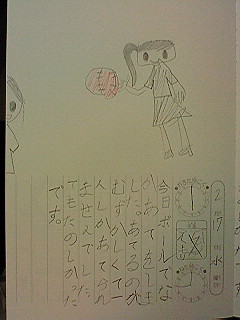 2月17日水曜日
今日ボールでな
かあてをしま
した。あてるのが
むずかしくて一
人しかあてられ
ませんでした。
でもたのしかった
です。